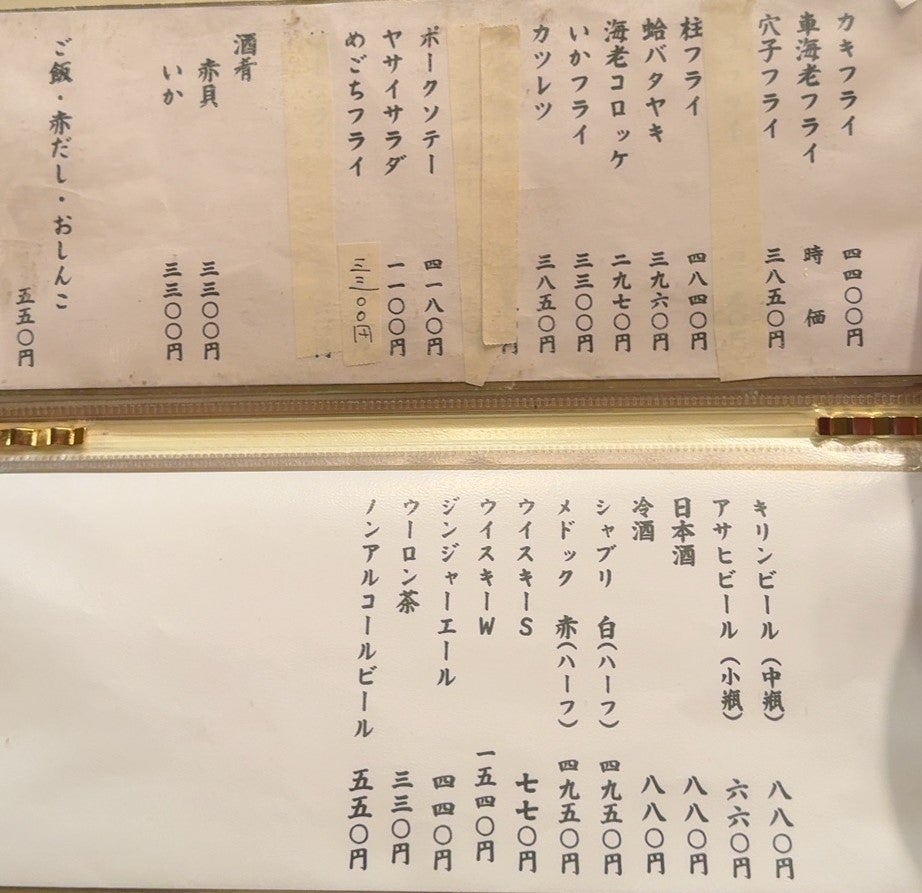 カキフライ 四四〇〇円
車海老フライ 時価
穴子フライ 三八五〇円
柱フライ 四八四〇円
蛤バタヤキ 三九六〇円
海老コロッケ 二九七〇円
いかフライ 三三〇〇円
カツレツ 三八五〇円
円
ポークソテー 四一八〇円
ヤサイサラダ 一一〇〇円
めごちフライ 三三〇〇円
酒肴
赤貝 三三〇〇円
いか 三三〇〇円
ご飯・赤だし・おしんこ 五五〇円
キリンビール (中瓶) 八八〇円
アサヒビール (小瓶) 六六〇円
日本酒 八八〇円
冷酒 八八〇円
シャブリ 白(ハーフ) 四九五〇円
メドック 赤(ハーフ) 四九五〇円
ウイスキーS 七七〇円
ウイスキーW 一五四〇円
ジンジャーエール 四四〇円
ウーロン茶 三三〇円
ノンアルコールビール 五五〇円